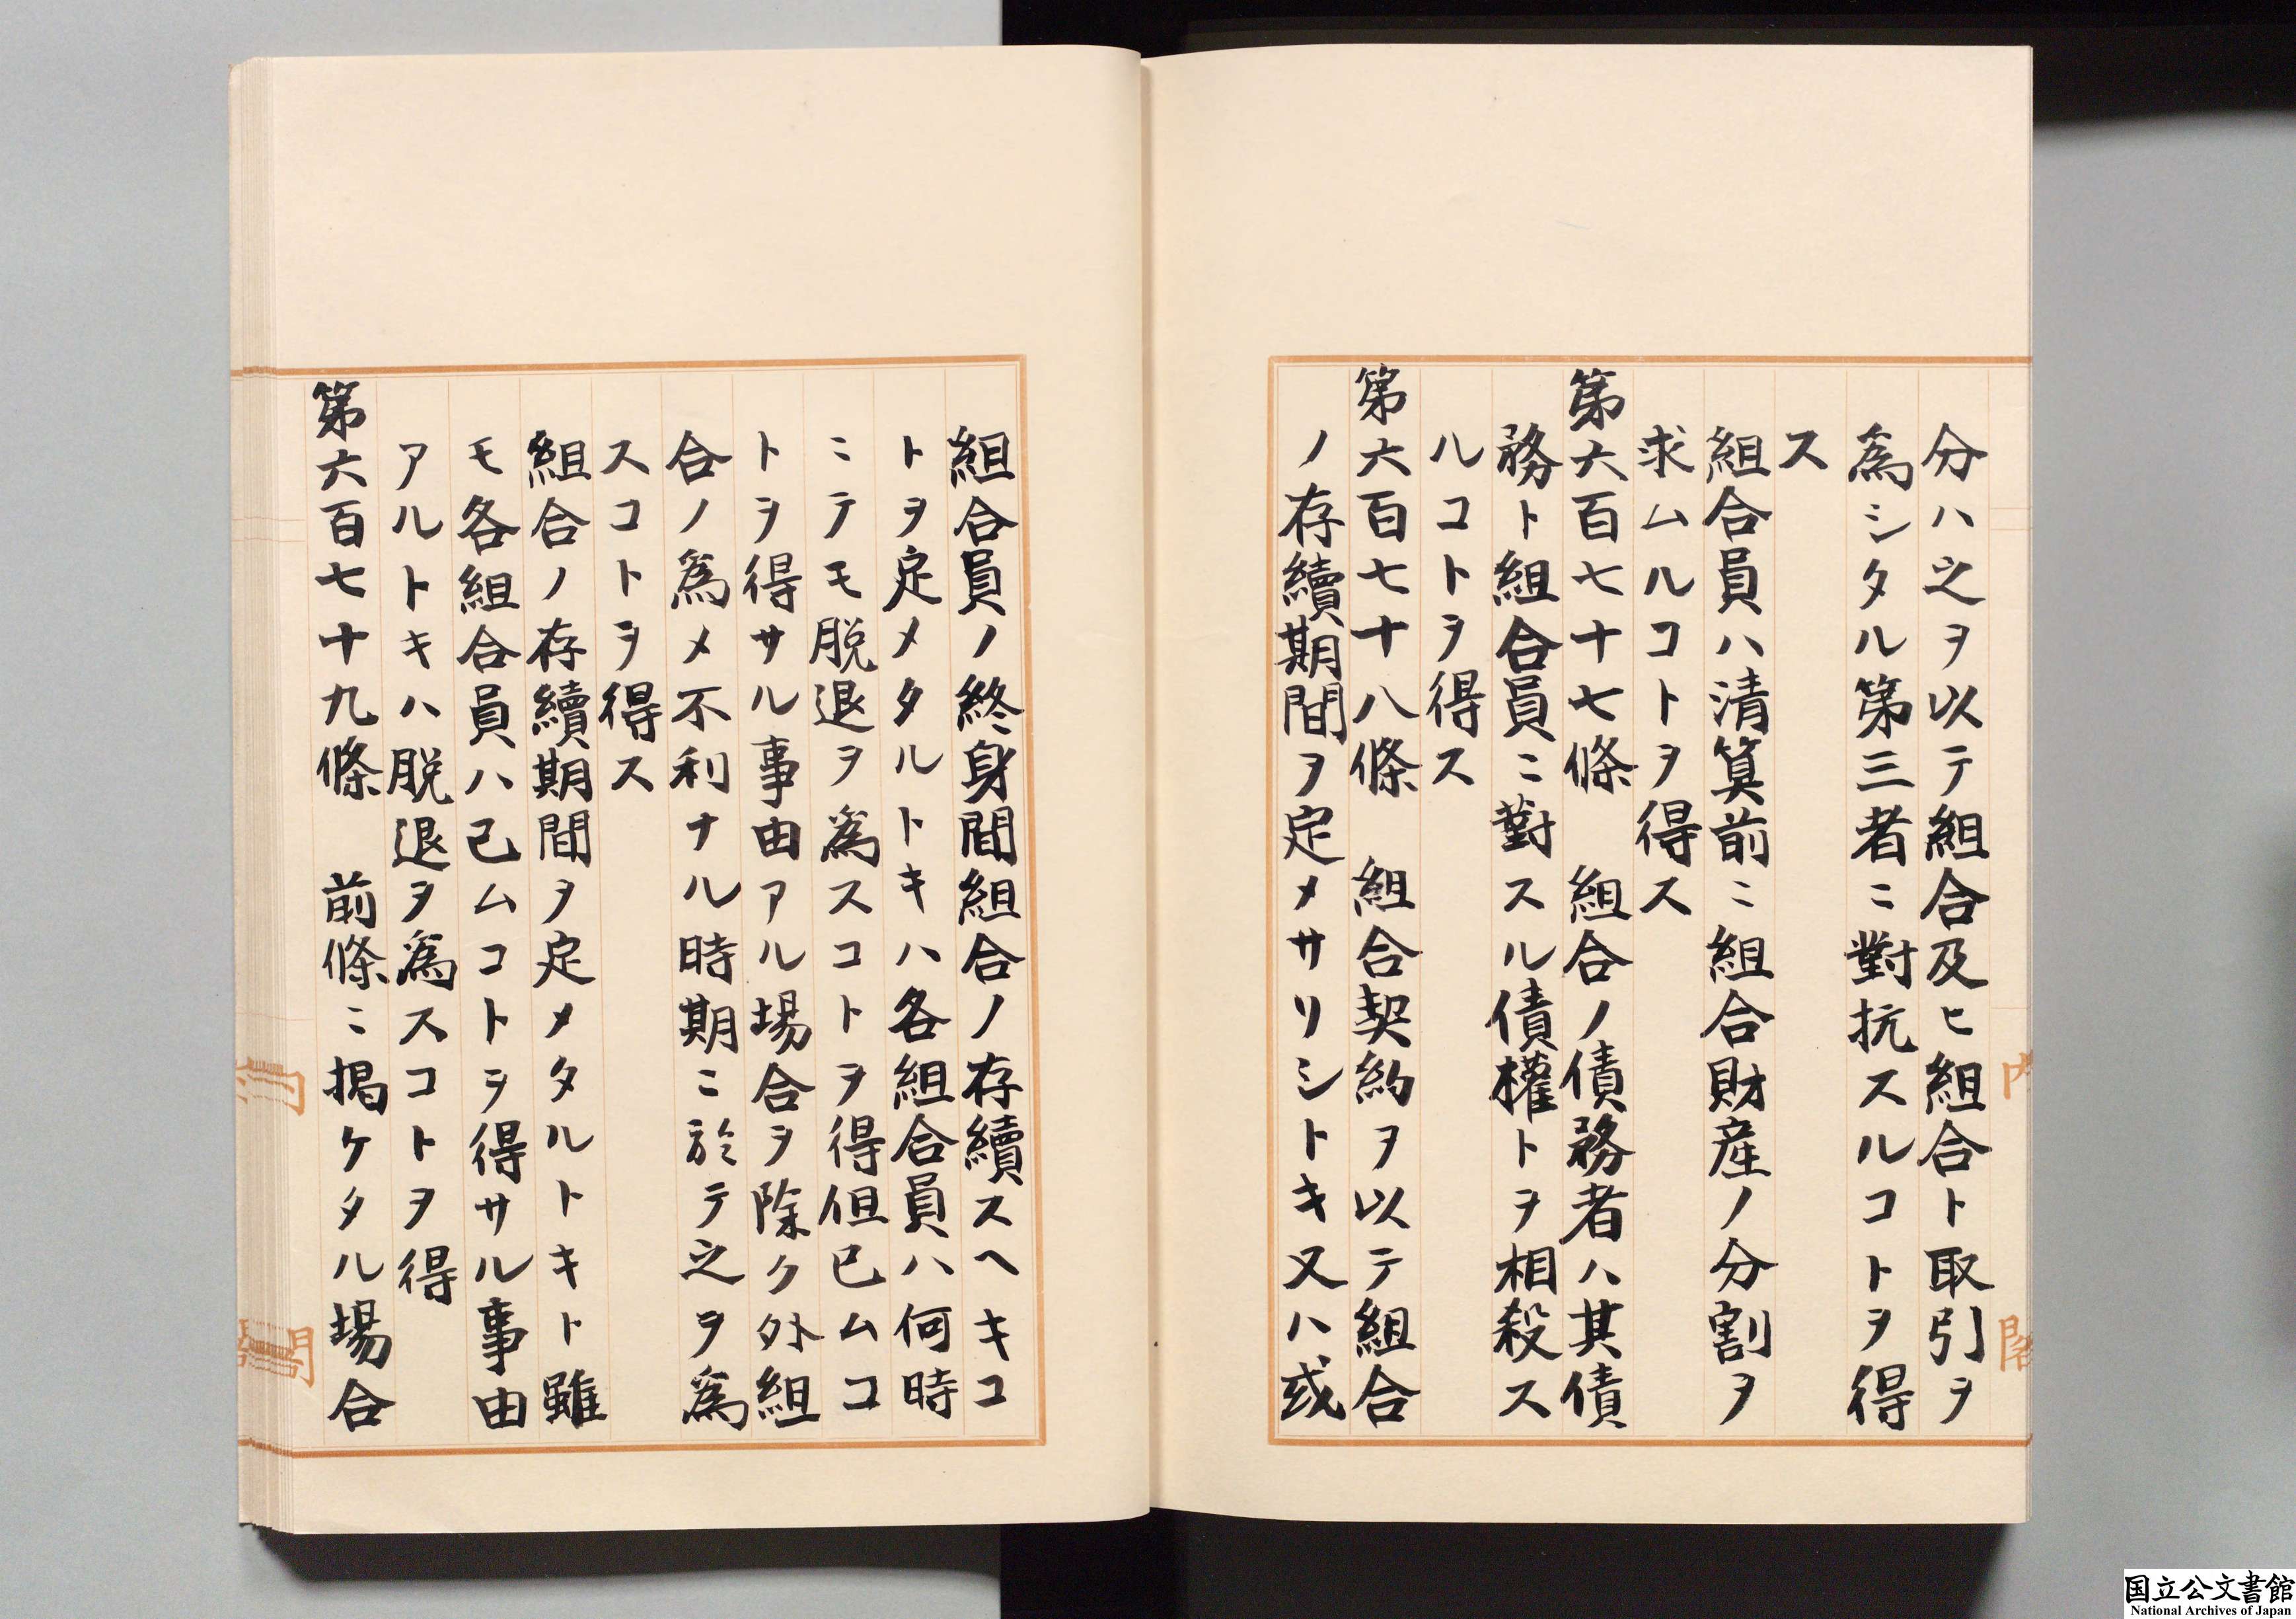 分ハ之ヲ以テ組合及ヒ組合ト取引ヲ
爲シタル第三者ニ對抗スルコトヲ得
ス
組合員ハ清算前ニ組合財産ノ分割ヲ
求ムルコトヲ得ス
第六百七十七條　組合ノ債務者ハ其債
務ト組合員ニ對スル債權トヲ相殺ス
ルコトヲ得ス
第六百七十八條　組合契約ヲ以テ組合
ノ存續期間ヲ定メサリシトキ又ハ或
組合員ノ終身間組合ノ存續スヘキコ
トヲ定メタルトキハ各組合員ハ何時
ニテモ脱退ヲ爲スコトヲ得但已ムコ
トヲ得サル事由アル場合ヲ除ク外組
合ノ爲メ不利ナル時期ニ於テ之ヲ爲
スコトヲ得ス
組合ノ存續期間ヲ定メタルトキト雖
モ各組合員ハ已ムコトヲ得サル事由
アルトキハ脱退ヲ爲スコトヲ得
第六百七十九條　前條ニ掲ケタル場合
国立公文書館
National Archives of Japan